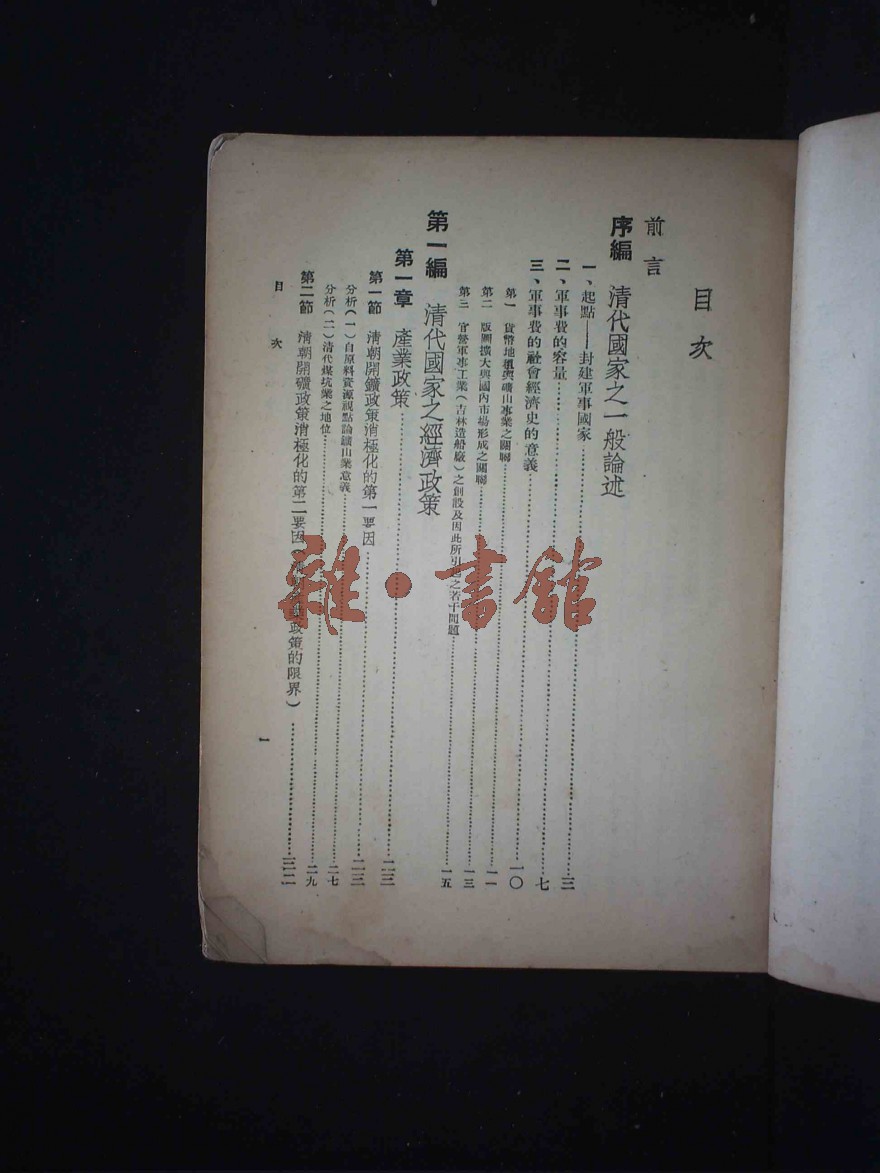 目次
前言
序編 清代國家之一般論述
一、起點——封建軍事國家……三
二、軍事費的容量……七
三、軍事費的社會經濟史的意義……一〇
第一 貨幣地租與礦山事業之關聯……一一
第二 版圖擴大與國內市場形成之關聯……一三
第三 官營軍事工業(吉林造船廠)之創設及因此所引起之若干問題……一五
第一編 清代國家之經濟政策
第一章 產業政策……二三
第一節 清朝開鑛政策消極化的第一要因……二三
分析(一)自原料資源視點論鑛山業意義……二七
分析(二)清代煤坑業之地位……二九
第二節 清朝開礦政策消極化的第二要因(政策的限界)……三二
目次
一
雜·書館